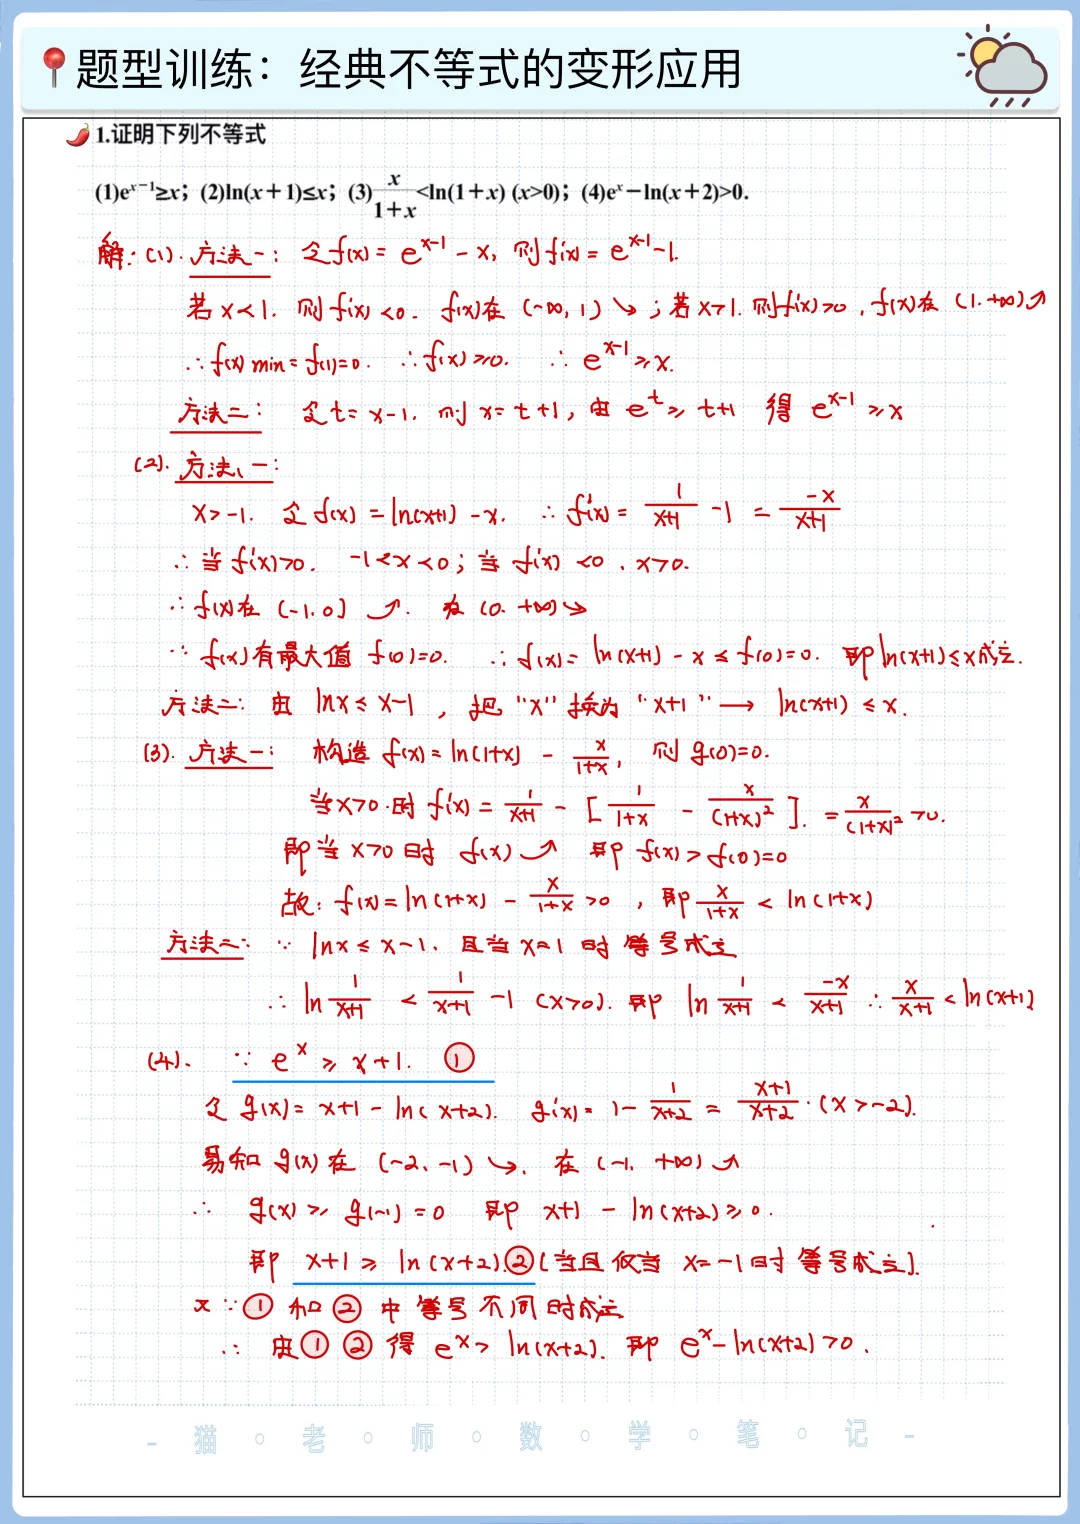 题型训练：经典不等式的变形应用
1.证明下列不等式
(1)eˣ⁻¹≥x；(2)ln(x+1)≤x；(3)x/(1+x)<ln(1+x) (x>0)；(4)eˣ-ln(x+2)>0.
解：(1). 方法一：令f(x)=eˣ⁻¹-x, 则f'(x)=eˣ⁻¹-1.
若x<1. 则f'(x)<0. f(x)在(-∞,1)↘；若x>1. 则f'(x)>0, f(x)在(1.+∞)↗
∴f(x)min=f(1)=0. ∴f(x)≥0. ∴eˣ⁻¹≥x.
方法二：令t=x-1. 则x=t+1, 由eᵗ≥t+1 得 eˣ⁻¹≥x
(2). 方法一：
x>-1. 令f(x)=ln(x+1)-x. ∴f'(x)=1/(x+1)-1=-x/(x+1)
∴当f'(x)>0. -1<x<0；当f'(x)<0. x>0.
∴f(x)在(-1.0]↗. 在(0.+∞)↘
∵f(x)有最大值f(0)=0. ∴f(x)=ln(x+1)-x≤f(0)=0. 即ln(x+1)≤x成立.
方法二：由 lnx≤x-1, 把“x”换为“x+1”→ ln(x+1)≤x.
(3). 方法一：构造f(x)=ln(1+x)-x/(1+x), 则g(0)=0.
当x>0.时f'(x)=1/(x+1)-[1/(1+x)-x/(1+x)²].=x/(1+x)²>0.
即当x>0时 f(x)↗ 即f(x)>f(0)=0
故：f(x)=ln(1+x)-x/(1+x)>0, 即x/(1+x)<ln(1+x)
方法二：∵lnx≤x-1. 且当x=1时等号成立
∴ln1/(x+1)<1/(x+1)-1 (x>0). 即ln1/(x+1)<-x/(x+1) ∴x/(x+1)<ln(x+1)
(4). ∵eˣ≥x+1. ①
令g(x)=x+1-ln(x+2). g'(x)=1-1/(x+2)=(x+1)/(x+2).(x>-2).
易知g(x)在(-2,-1)↘. 在(-1,+∞)↗
∴g(x)≥g(-1)=0 即x+1-ln(x+2)≥0.
即x+1≥ln(x+2).②(当且仅当x=-1时等号成立).
又∵①和②中等号不同时成立
∴由①②得eˣ>ln(x+2). 即eˣ-ln(x+2)>0.
- 猫·老·师·数·学·笔·记 -